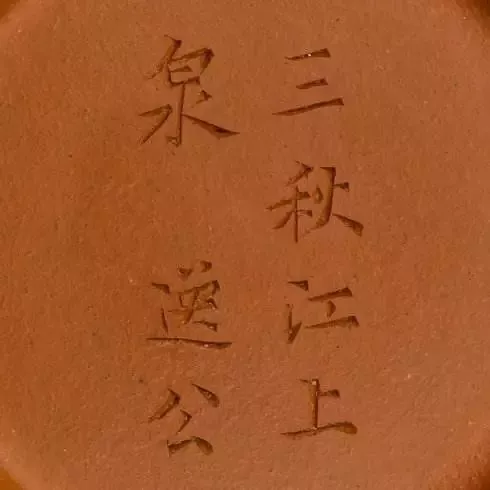 三秋江上
泉 逸公